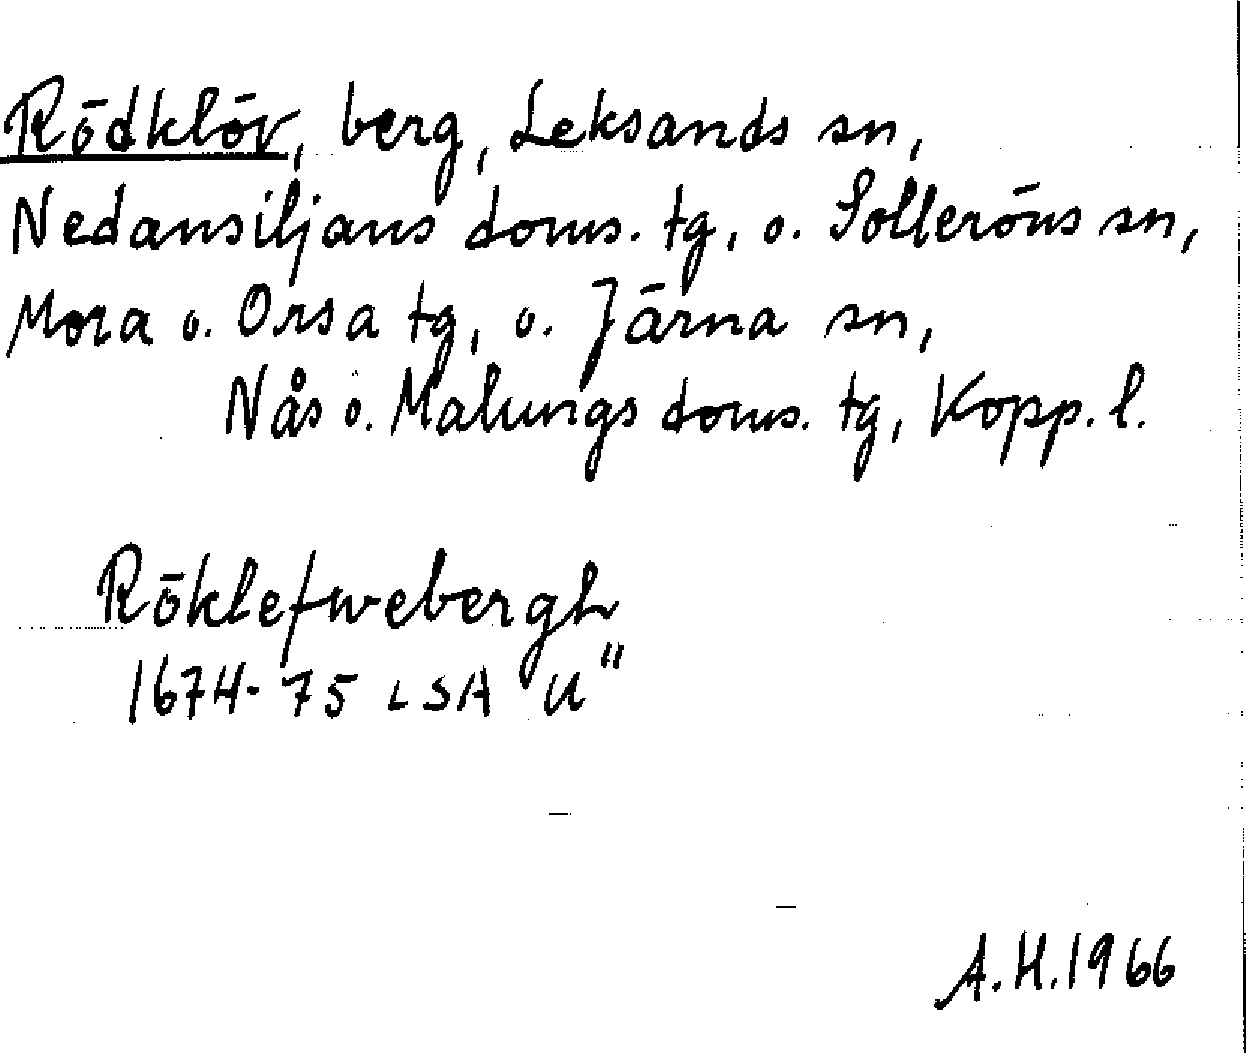 Rödklöv, berg, Leksands sn,
Nedansiljans doms. tg, o. Solleröns sn,
Mora o. Orsa tg, o. Järna sn,
Nås o. Malungs doms. tg, Kopp. l.
Röklefwebergh
1674-75 LSA "U"
A.H.1966